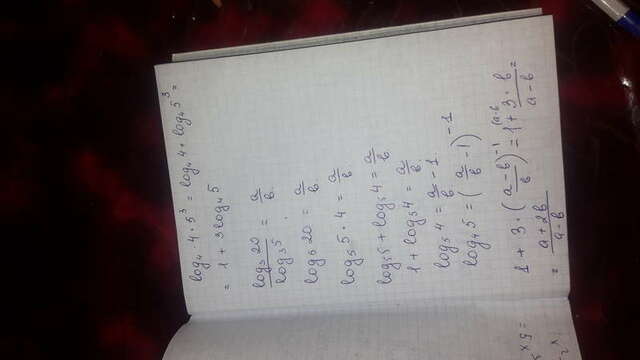 log₄ 4·5³ = log₄ 4 + log₄ 5³ =
= 1 + 3log₄ 5
log₃ 20 / log₃ 5 = a/b
log₅ 20 = a/b
log₅ 5·4 = a/b
log₅ 5 + log₅ 4 = a/b
1 + log₅ 4 = a/b
log₅ 4 = a/b - 1
log₄ 5 = (a/b - 1)⁻¹
1 + 3·((a-b)/b)⁻¹ = 1 + 3·b/(a-b) =
= (a+2b)/(a-b)